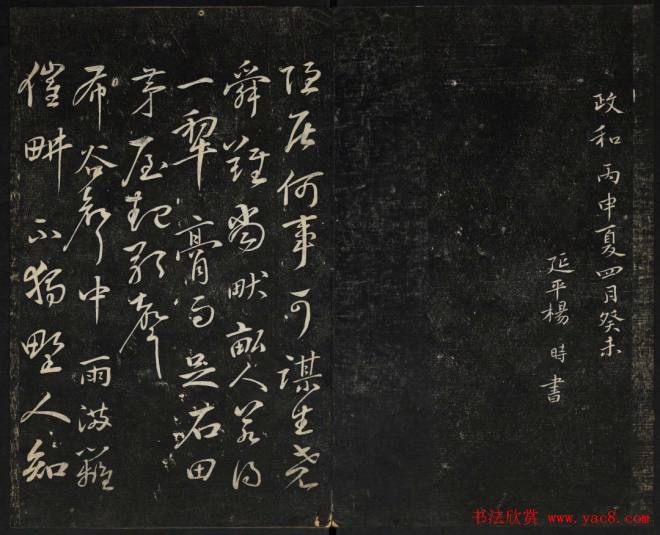 政和丙申夏四月癸未
延平楊時書
隱居何事可謀生堯
舜畎畝人若得
一犁膏雨足石田
茅屋起歌聲
布谷聲中雨滿
催耕不獨野人知
书法欣赏 www.yac8.com